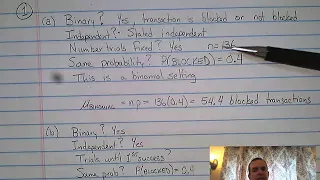 1
(a) Binary? Yes, transaction is blocked or not blocked
Independent? Stated independent
Number trials fixed? Yes n=136
Same probability? P(BLOCKED) = 0.4
This is a binomial setting
= np = 136(0.4) = 54.4 blocked transactions
(b) Binary? Yes
Independent? Yes
Trials until 1st success?
Same prob? P(BLOCKED)=0.4